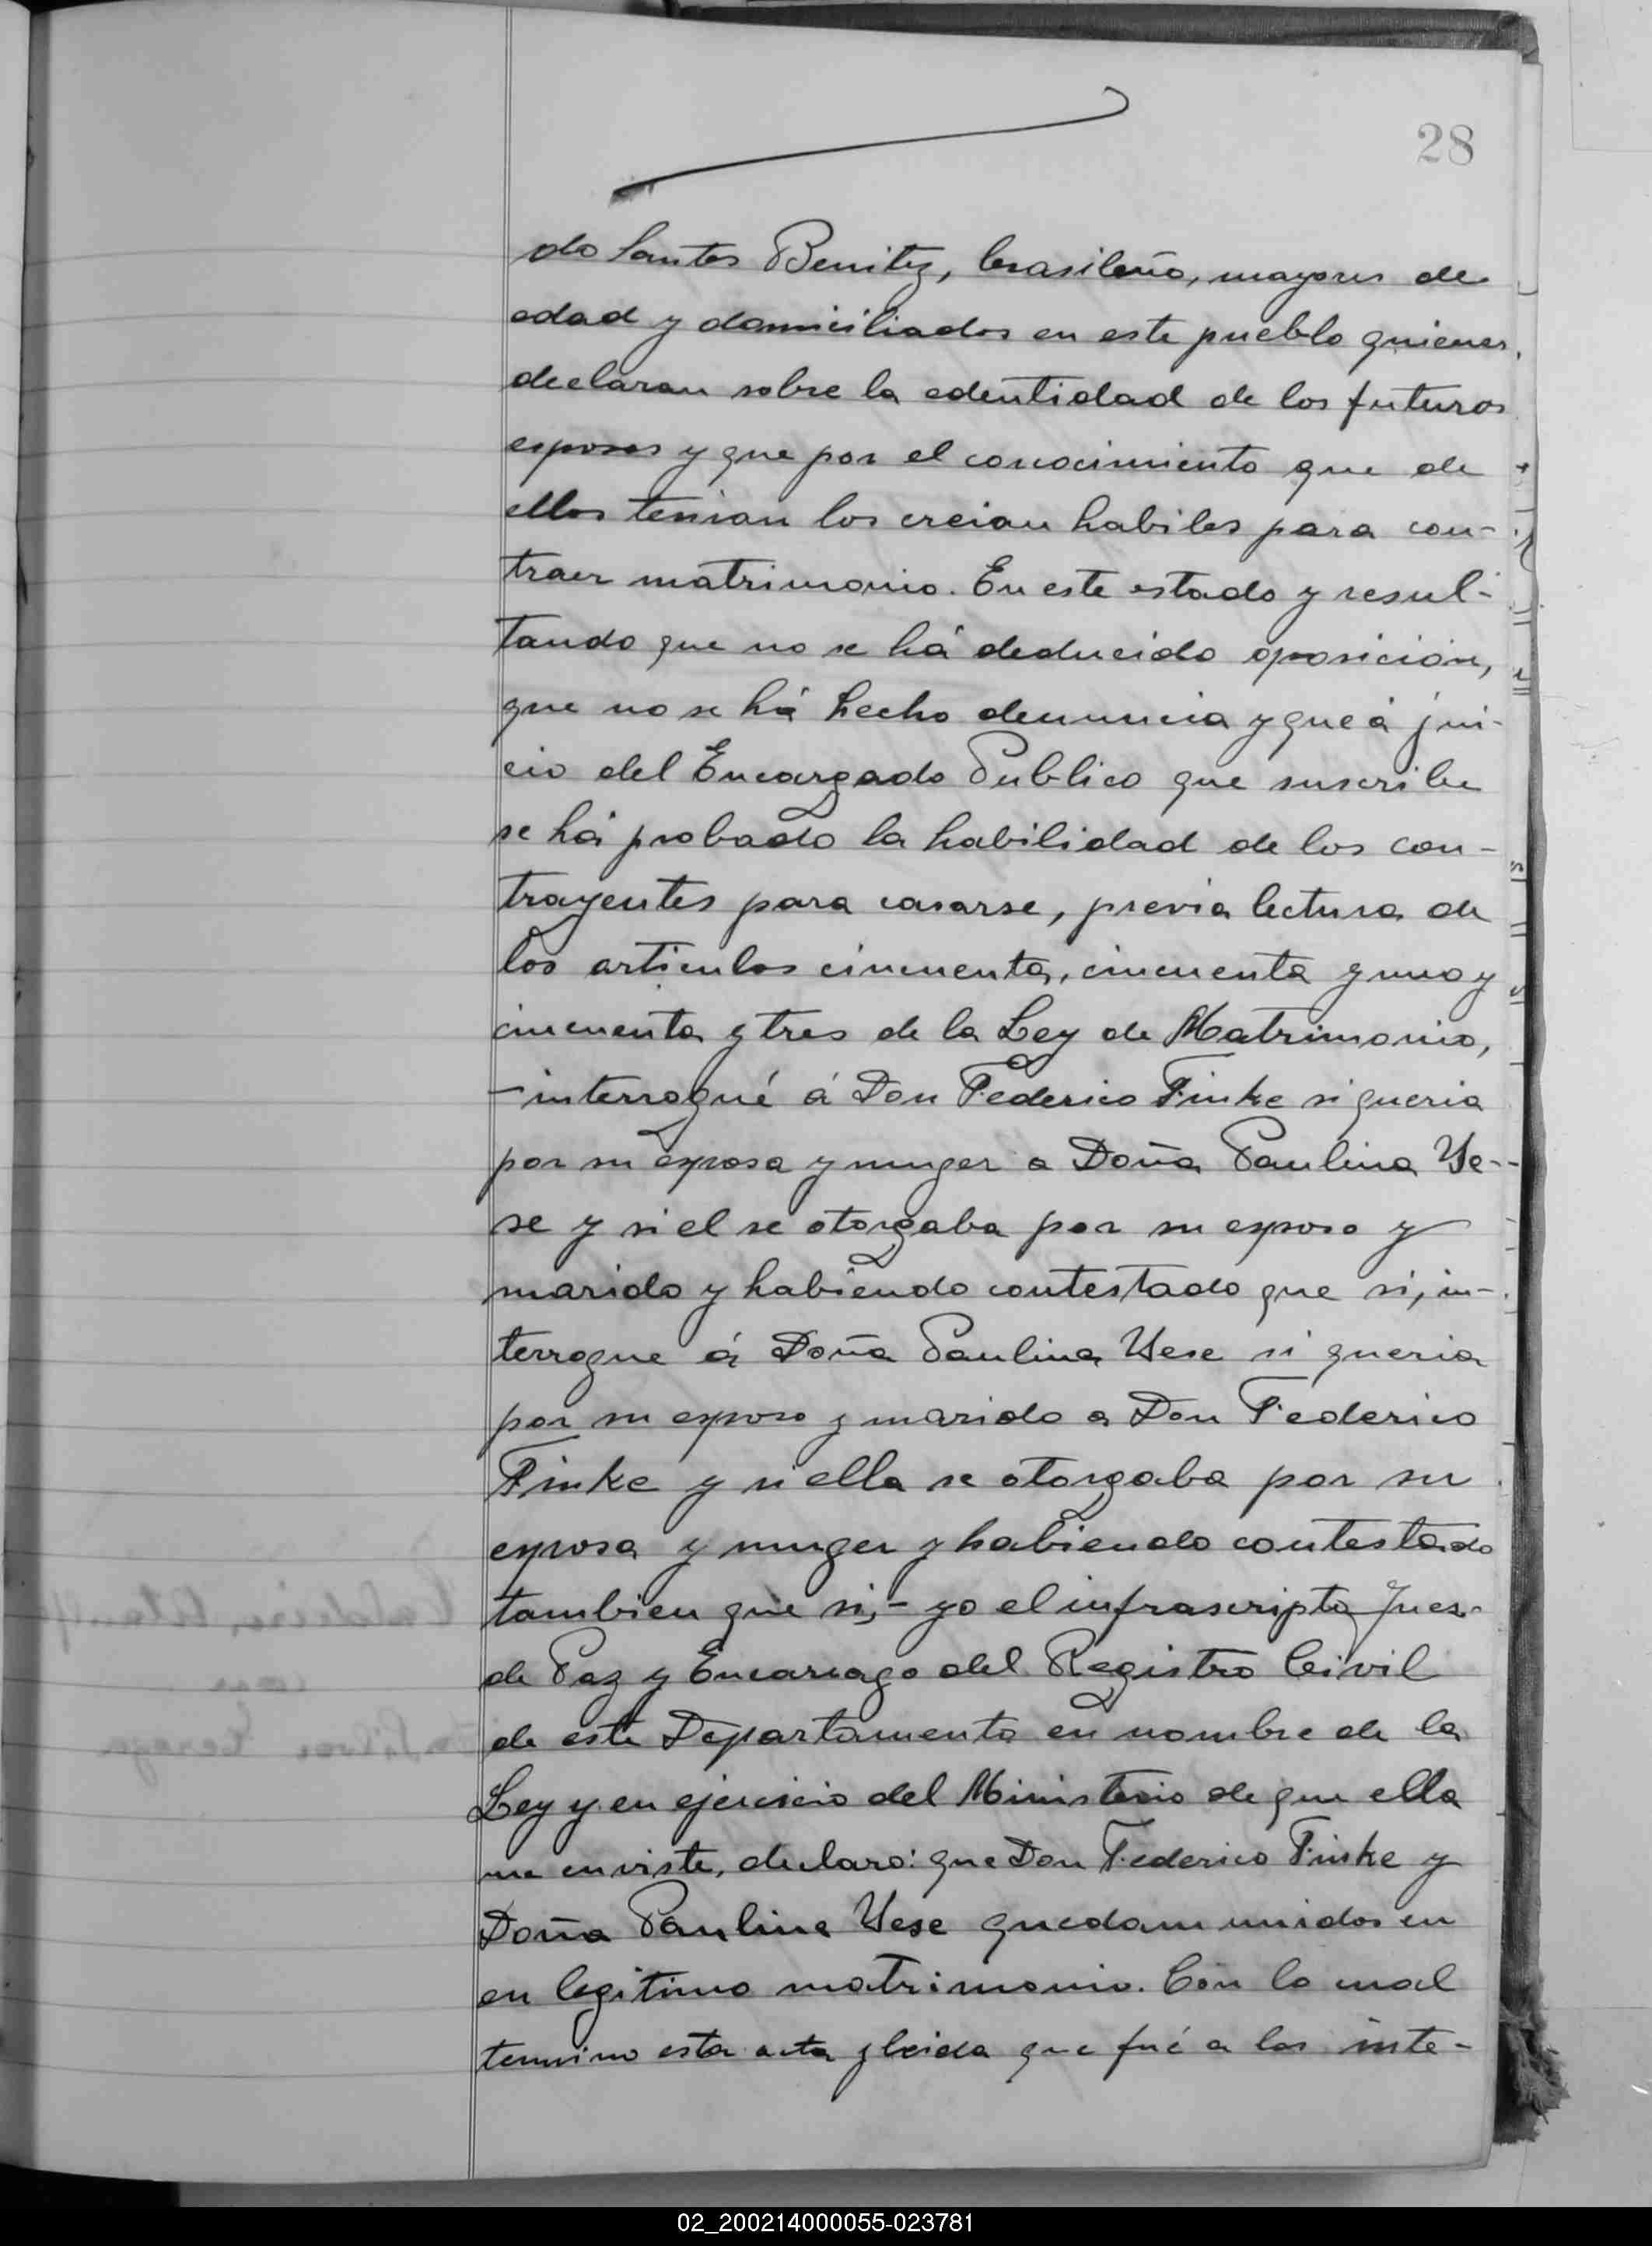 28
do Santos Benitez, brasileño, mayores de
edad y domiciliados en este pueblo quienes,
declaran sobre la edentidad de los futuros
esposos y que por el conocimiento que de
ellos tenian los creian habiles para con-
traer matrimonio. En este estado y resul-
tando que no se há deducido oposición,
que no se há hecho denuncia y que á jui-
cio del Encargado Publico que suscribe
se há probado la habilidad de los con-
trayentes para casarse, previa lectura de
los articulos cincuenta, cincuenta y uno y
cincuenta y tres de la Ley de Matrimonio,
- interrogué á Don Federico Finke si queria
por su esposa y muger a Doña Paulina Ye-
se y si el se otorgaba por su esposo y
marido y habiendo contestado que si, in-
terrogue á Doña Paulina Yese si queria
por su esposo y marido a Don Federico
Finke y si ella se otorgaba por su
esposa y muger y habiendo contestado
tambien que si,- yo el infrascripto Jues
de Paz y Encarcago del Registro Civil
de este Departamento en nombre de la
Ley y en ejercicio del Ministerio de que ella
me enviste, declaro: que Don Federico Finke y
Doña Paulina Yese quedam unidos en
en legitimo matrimonio. Con lo cual
termino esta acta y leida que fué a los inte-
02_200214000055-023781